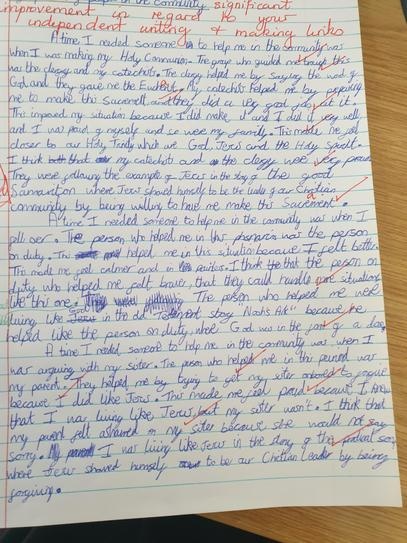 significant
improvement in regard to your
independent writing & making links
A time I needed someone to help me in the community was
when I was making my Holy Communion. The people who guided me through this
was the clergy and my catechists. The clergy helped me by saying the word of
God and they gave me the Eucharist. My catechists helped me by preparing
me to make this Sacrament and they did a very good job at it.
This improved my situation because I did make it and I did it very well
and I was proud of myself and so were my family. This made me feel
closer to our Holy Trinity which are God, Jesus and the Holy Spirit.
I think that my catechists and the clergy were very proud
They were following the example of Jesus in the story of the good
Samaritan where Jesus showed himself to be the leader of our Christian
community by being willing to have me make this Sacrament.
A time I needed someone to help me in the community was when I
fell over. The person who helped me in this was the person
on duty. This helped me in this situation because I felt better.
This made me feel calmer and in less pain. I think that the person on
duty who helped me felt brave, that they could handle more situations
like this one. The person who helped me were
living like God in the old Testament story "Noah's Ark" because he
helped like the person on duty, where God was in the form of a dove
A time I needed someone to help me in the community was when I
was arguing with my sister. The person who helped me in this period was
my parent. They helped me by trying to get my sister to forgive
because I did like Jesus. This made me feel proud because I knew
that I was living like Jesus but my sister wasn't. I think that
my parent felt ashamed in my sister because she would not say
sorry. I was living like Jesus in the story of the son
where Jesus showed himself to be our Christian Leader by being
forgiving.